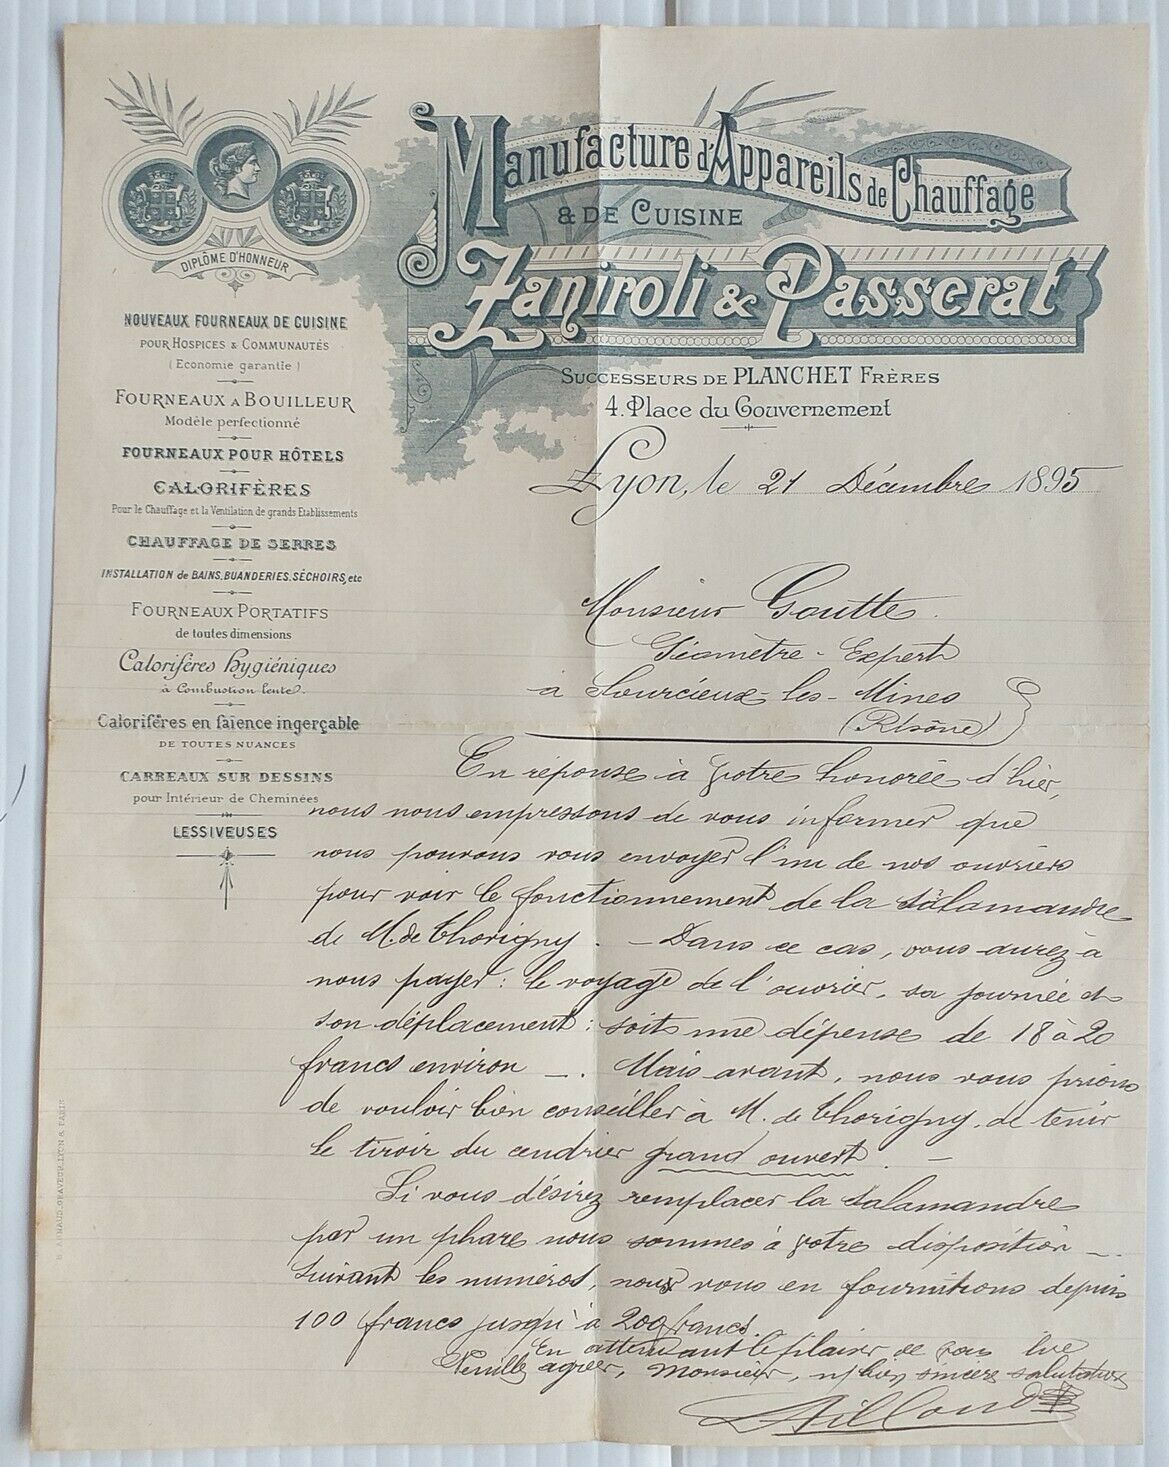 Manufacture d'Appareils de Chauffage
& DE CUISINE
Zaniroli & Passerat
SUCCESSEURS DE PLANCHET FRÈRES
4. Place du Gouvernement
DIPLÔME D'HONNEUR
NOUVEAUX FOURNEAUX DE CUISINE
POUR HOSPICES & COMMUNAUTÉS
(Economie garantie)
FOURNEAUX A BOUILLEUR
Modèle perfectionné
FOURNEAUX POUR HÔTELS
CALORIFÈRES
Pour le Chauffage et la Ventilation de grands Etablissements
CHAUFFAGE DE SERRES
INSTALLATION de BAINS, BUANDERIES, SÉCHOIRS, etc
FOURNEAUX PORTATIFS
de toutes dimensions
Calorifères hygiéniques
à Combustion lente.
Calorifères en faïence ingerçable
DE TOUTES NUANCES
CARREAUX SUR DESSINS
pour Intérieur de Cheminées
LESSIVEUSES
ARNAUD, GRAVEUR, LYON & PARIS
Lyon, le 21 Décembre 1895
Monsieur Goutte.
Géomètre - Expert
à Sourcieux-les-Mines
(Rhône)
En réponse à votre honorée d'hier,
nous nous empressons de vous informer que
nous pouvons vous envoyer l'un de nos ouvriers
pour voir le fonctionnement de la Salamandre
de M. de Thorigny. - Dans ce cas, vous aurez à
nous payer : le voyage de l'ouvrier, sa journée et
son déplacement : soit une dépense de 18 à 20
francs environ -. Mais avant, nous vous prions
de vouloir bien conseiller à M. de Thorigny, de tenir
le tiroir du cendrier grand ouvert. -
Si vous désirez remplacer la Salamandre
par un phare nous sommes à votre disposition -.
Suivant les numéros, nous vous en fournitions depuis
100 francs jusqu'à 200 francs.
En attendant le plaisir de vous lire
Veuillez agréer, Monsieur, n/ bien sincères salutations